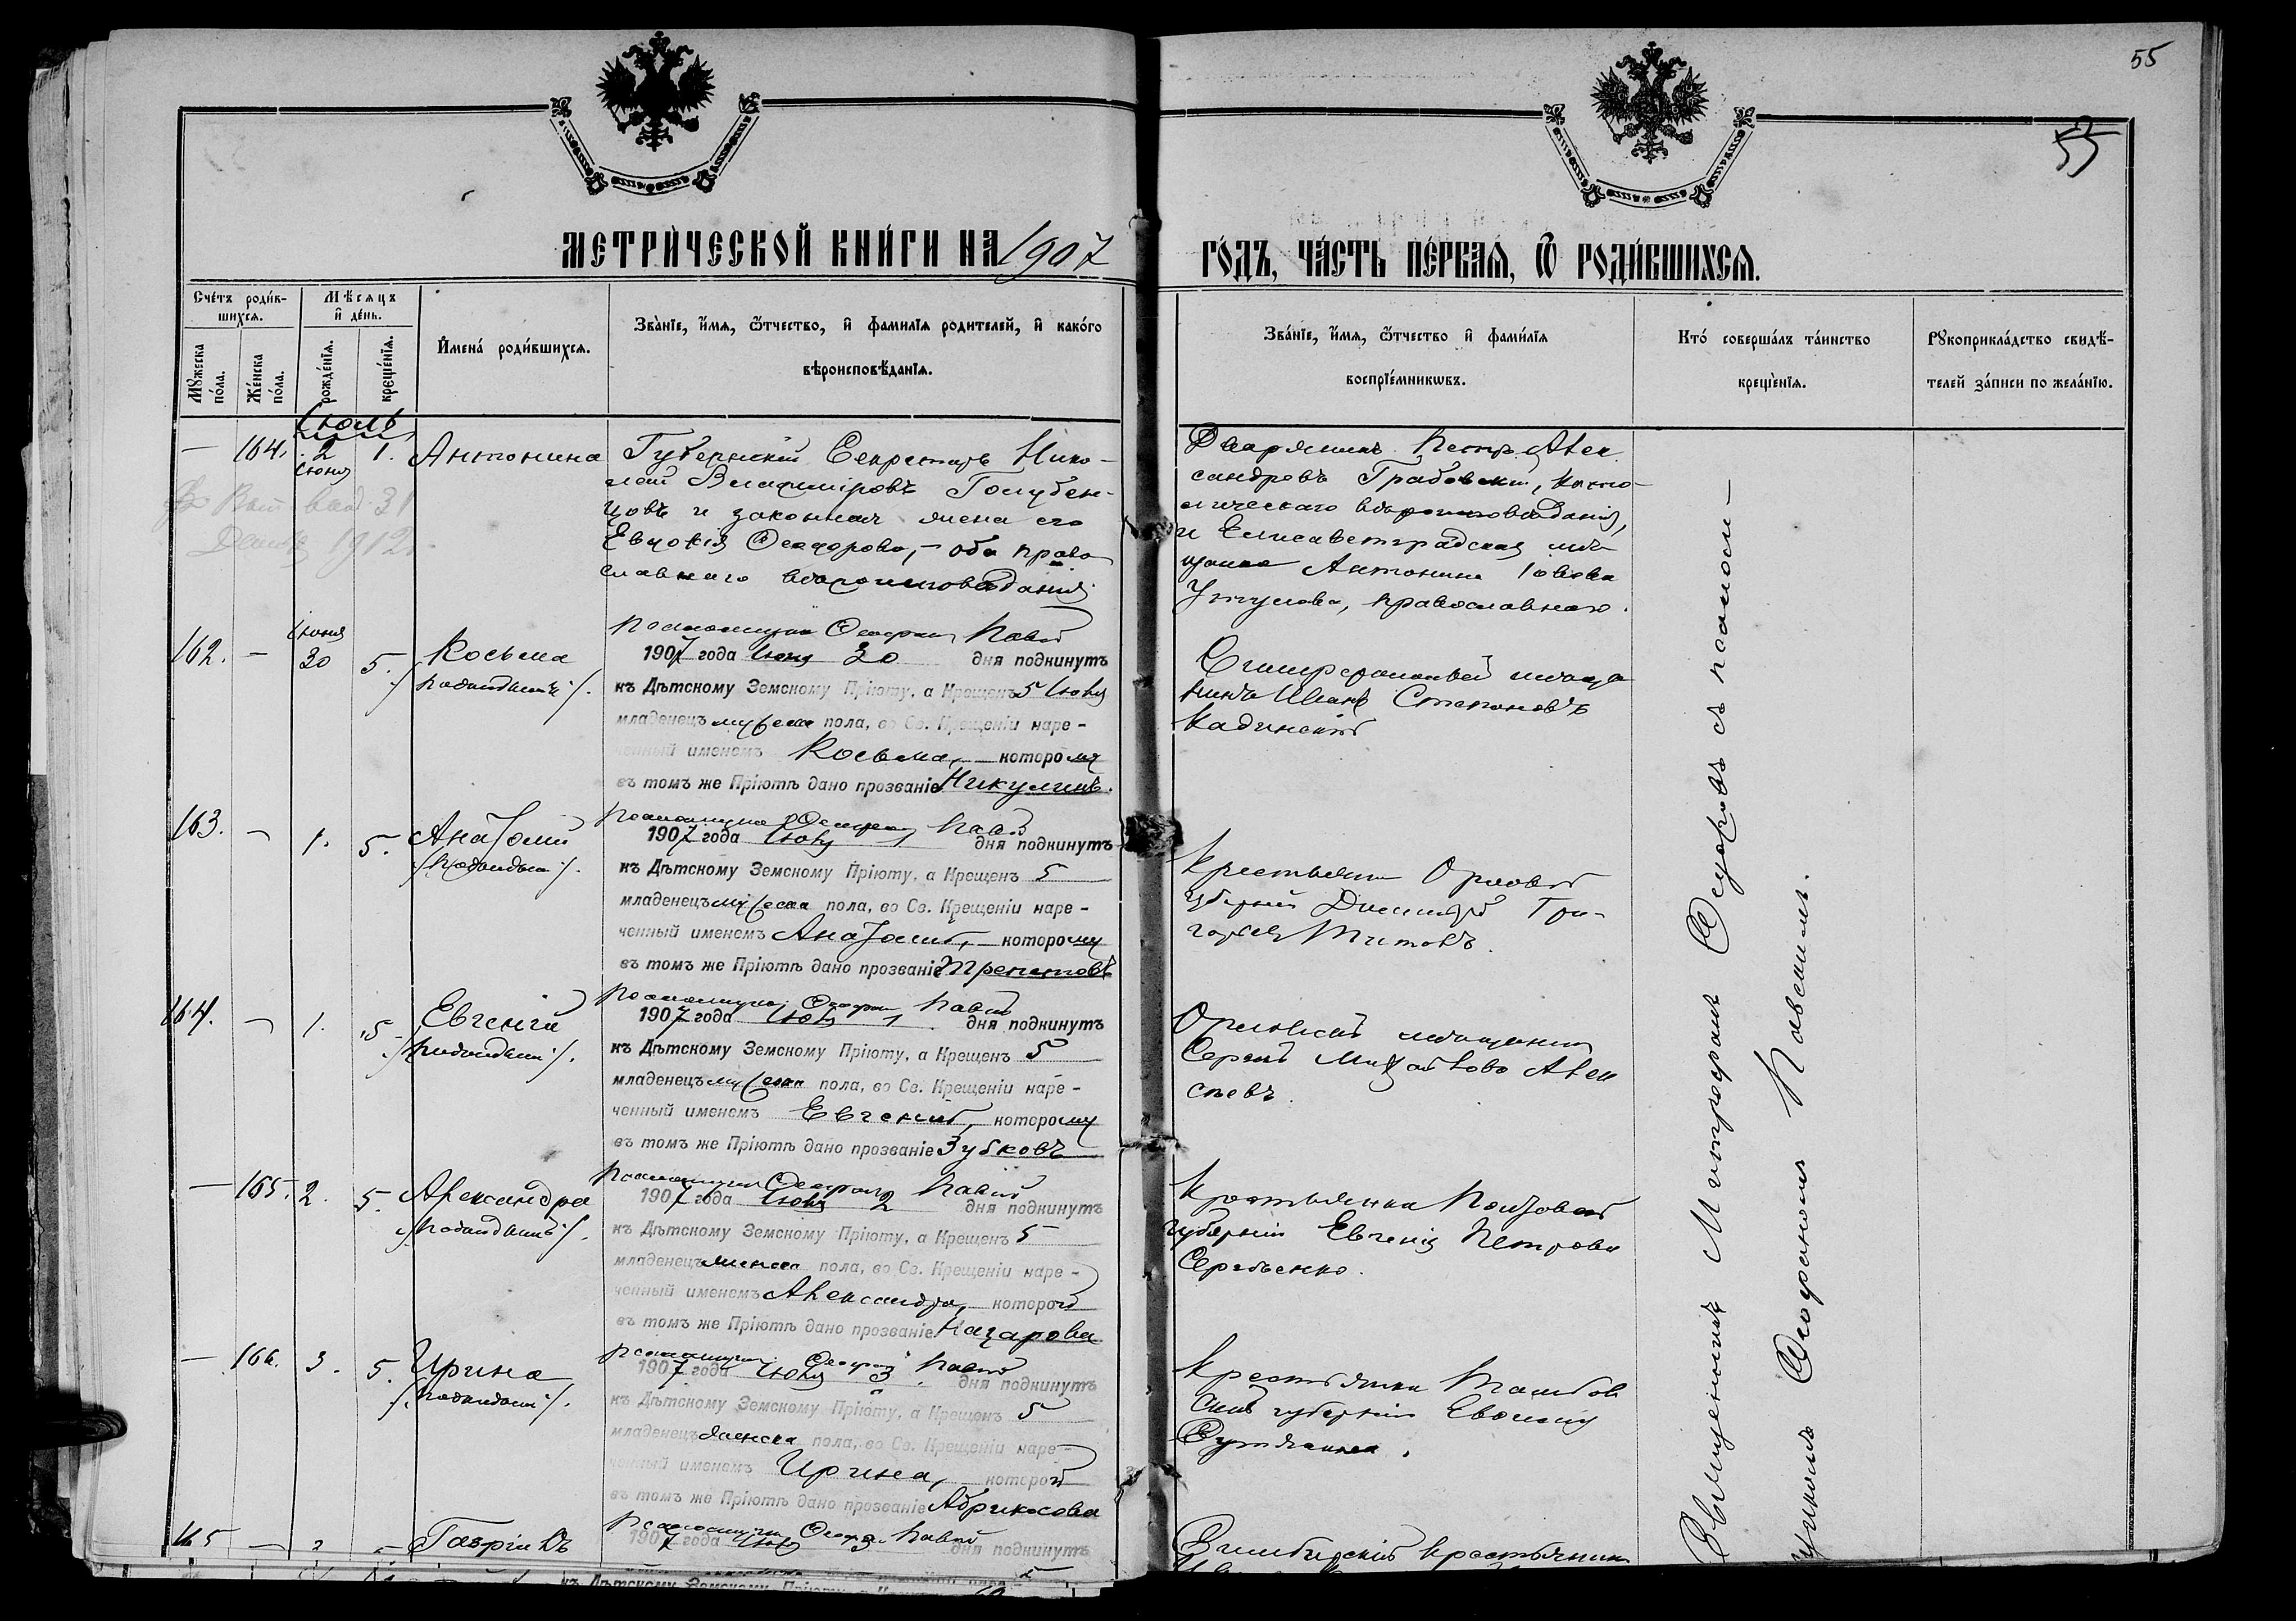 55
55
МЕТРИЧЕСКОЙ КНИГИ НА 1907
ГОДЪ, ЧАСТЬ ПЕРВАЯ, Ѿ РОДИВШИХСЯ.
Счетъ родив-
шихся.
Мѣсяцъ
и день.
Мужеска
пола.
Женска
пола.
рожденія.
крещенія.
Имена родившихся.
Званіе, имя, ѿтчество, и фамилія родителей, и какого
вѣроисповѣданія.
Званіе, имя, ѿтчество и фамилія
воспріемниковъ.
Кто совершалъ таинство
крещенія.
Рукоприкладство свидѣ-
телей записи по желанію.
Іюль
— 164. 2 1. Антонина
Іюня
Губернскій Секретарь Нико-
лай Владиміровъ Голубен-
цовъ и законная жена его
Евдокія Ѳеодорова, — оба право
славнаго вѣроисповѣданія
Дворянинъ Петръ Алек
сандровъ Грабовскій, като-
лическаго вѣроисповѣданія,
и Елисаветградская мѣ
щанка Антонина Іовова
православнаго.
1912
162. — Іюня 30 5. Косьма
1907 года Іюня 30 дня подкинутъ
къ Дѣтскому Земскому Пріюту, а Крещенъ 5 Іюля
младенецъ мужеска пола, во Св. Крещеніи наре-
ченный именемъ Косьма, которому
въ томъ же Пріютѣ дано прозваніе Никулинъ.
Симферопольскій мѣща
нинъ Иванъ Степановъ
Кадинскій
163. — 1. 5. Анатолій
1907 года Іюля 1 дня подкинутъ
къ Дѣтскому Земскому Пріюту, а Крещенъ 5
младенецъ мужеска пола, во Св. Крещеніи наре-
ченный именемъ Анатолій, которому
въ томъ же Пріютѣ дано прозваніе Трепетовъ
Крестьянинъ Орловской
губерніи Дмитрій Гри-
горьевъ Титовъ.
164. — 1. 5. Евгеній
1907 года Іюля 1 дня подкинутъ
къ Дѣтскому Земскому Пріюту, а Крещенъ 5
младенецъ мужеска пола, во Св. Крещеніи наре-
ченный именемъ Евгеній, которому
въ томъ же Пріютѣ дано прозваніе Зубковъ
Орловскій мѣщанинъ
Сергѣй Михайловъ Алек
сѣевъ.
— 165. 2. 5. Александра
1907 года Іюля 2 дня подкинутъ
къ Дѣтскому Земскому Пріюту, а Крещенъ 5
младенецъ женска пола, во Св. Крещеніи наре-
ченный именемъ Александра, которой
въ томъ же Пріютѣ дано прозваніе Назарова
Крестьянка Полтавской
губерніи Евгенія Петрова
Сергѣенко.
— 166. 3. 5. Ирина
1907 года Іюля 3 дня подкинутъ
къ Дѣтскому Земскому Пріюту, а Крещенъ 5
младенецъ женска пола, во Св. Крещеніи наре-
ченный именемъ Ирина, которой
въ томъ же Пріютѣ дано прозваніе Абрикосова
Крестьянка Тамбов
ской губерніи
165 — Гавріилъ
1907 года Іюля 3 дня подкинутъ
Симбирскій крестьянинъ
къ Дѣтскому Земскому Пріюту, а Крещенъ
Священникъ Митрофанъ